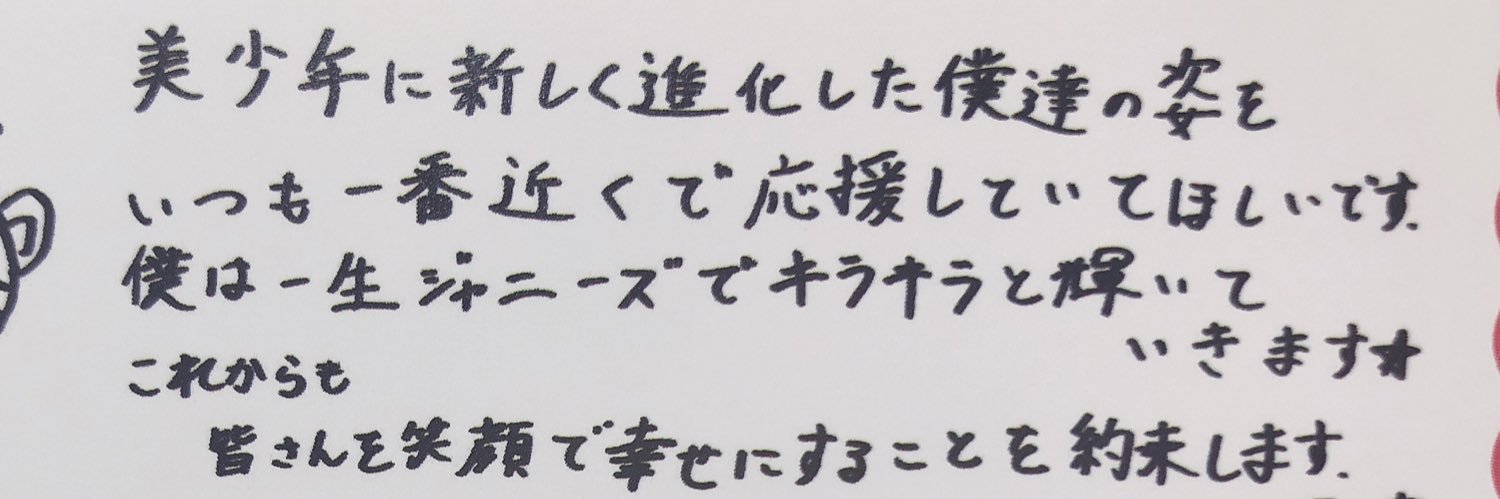 美少年に新しく進化した僕達の姿を
いつも一番近くで応援していてほしいです.
僕は一生ジャニーズでキラキラと輝いて
いきます★
これからも
皆さんを笑顔で幸せにすることを約束します.